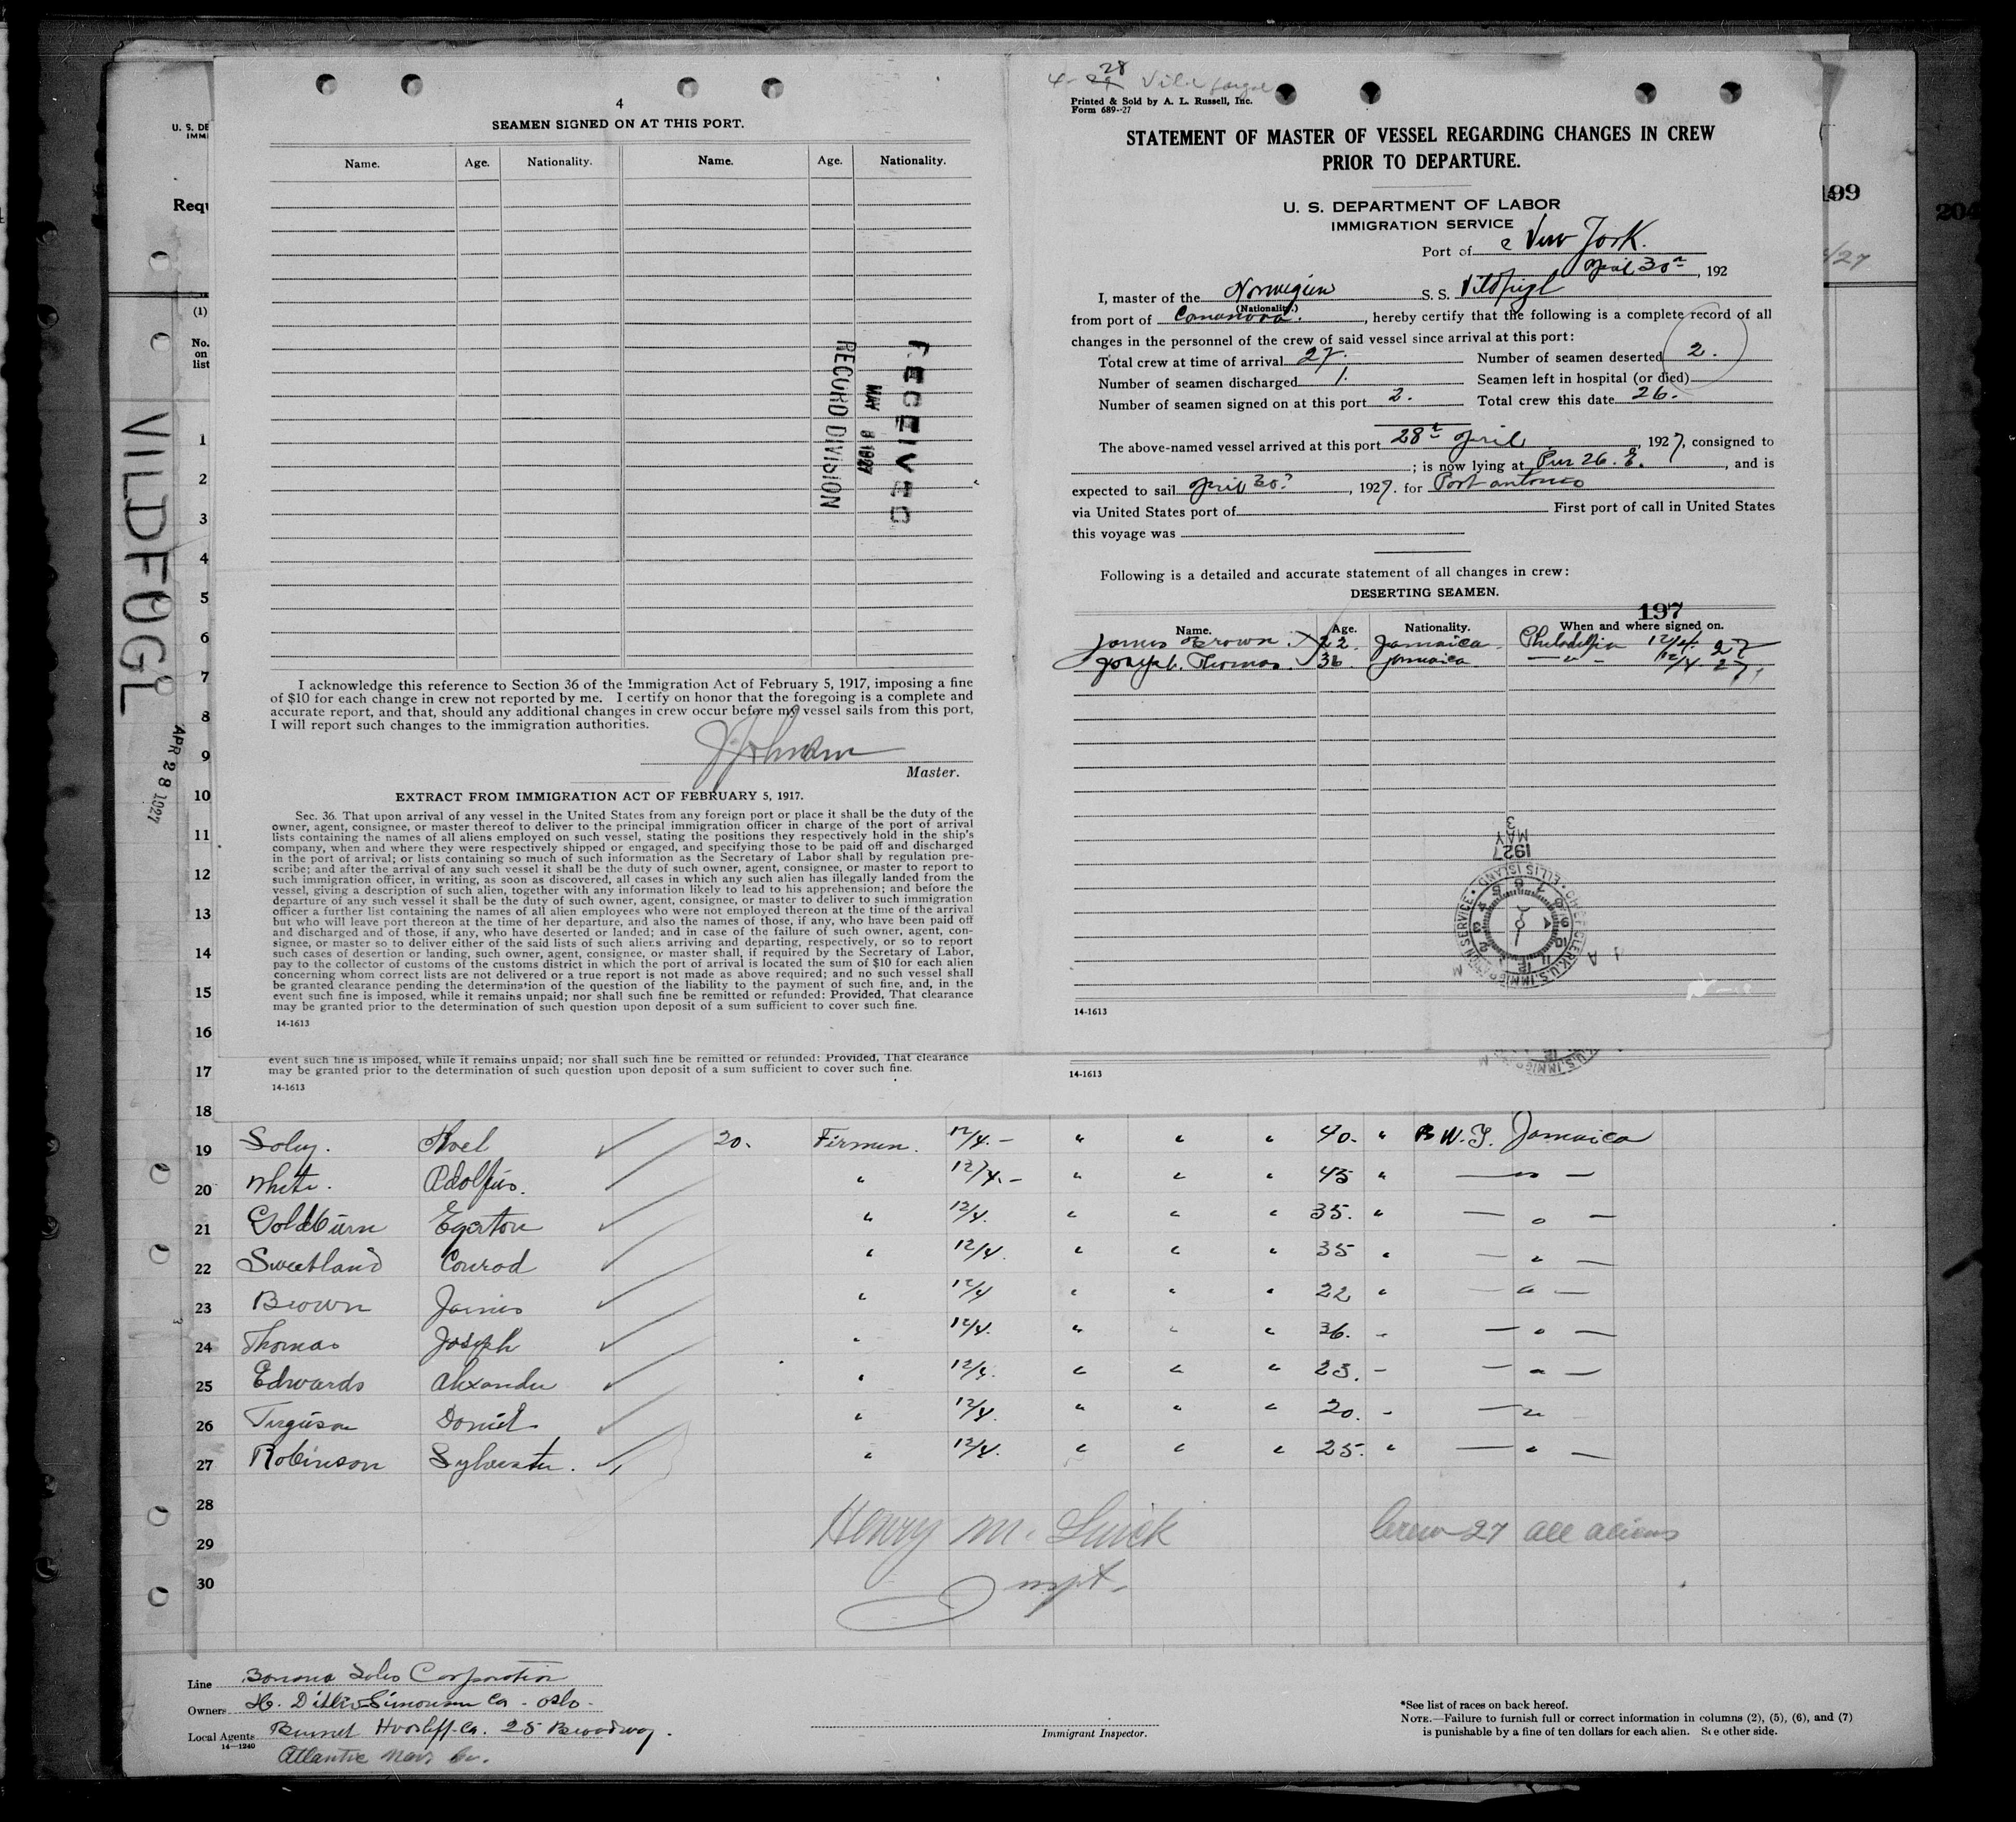 4
SEAMEN SIGNED ON AT THIS PORT.
Name. Age. Nationality. Name. Age. Nationality.
RECEIVED
MAY 8 1927
RECORD DIVISION
I acknowledge this reference to Section 36 of the Immigration Act of February 5, 1917, imposing a fine
of $10 for each change in crew not reported by me. I certify on honor that the foregoing is a complete and
accurate report, and that, should any additional changes in crew occur before my vessel sails from this port,
I will report such changes to the immigration authorities.
Master.
EXTRACT FROM IMMIGRATION ACT OF FEBRUARY 5, 1917.
Sec. 36. That upon arrival of any vessel in the United States from any foreign port or place it shall be the duty of the
owner, agent, consignee, or master thereof to deliver to the principal immigration officer in charge of the port of arrival
lists containing the names of all aliens employed on such vessel, stating the positions they respectively hold in the ship's
company, when and where they were respectively shipped or engaged, and specifying those to be paid off and discharged
in the port of arrival; or lists containing so much of such information as the Secretary of Labor shall by regulation pre-
scribe; and after the arrival of any such vessel it shall be the duty of such owner, agent, consignee, or master to report to
such immigration officer, in writing, as soon as discovered, all cases in which any such alien has illegally landed from the
vessel, giving a description of such alien, together with any information likely to lead to his apprehension; and before the
departure of any such vessel it shall be the duty of such owner, agent, consignee, or master to deliver to such immigration
officer a further list containing the names of all alien employees who were not employed thereon at the time of the arrival
but who will leave port thereon at the time of her departure, and also the names of those, if any, who have been paid off
and discharged and of those, if any, who have deserted or landed; and in case of the failure of such owner, agent, con-
signee, or master so to deliver either of the said lists of such aliens arriving and departing, respectively, or so to report
such cases of desertion or landing, such owner, agent, consignee, or master shall, if required by the Secretary of Labor,
pay to the collector of customs of the customs district in which the port of arrival is located the sum of $10 for each alien
concerning whom correct lists are not delivered or a true report is not made as above required; and no such vessel shall
be granted clearance pending the determination of the question of the liability to the payment of such fine, and, in the
event such fine is imposed, while it remains unpaid; nor shall such fine be remitted or refunded: Provided, That clearance
may be granted prior to the determination of such question upon deposit of a sum sufficient to cover such fine.
14-1613
event such fine is imposed, while it remains unpaid; nor shall such fine be remitted or refunded: Provided, That clearance
may be granted prior to the determination of such question upon deposit of a sum sufficient to cover such fine.
14-1613
Printed & Sold by A. L. Russell, Inc.
Form 689-27
STATEMENT OF MASTER OF VESSEL REGARDING CHANGES IN CREW
PRIOR TO DEPARTURE.
U. S. DEPARTMENT OF LABOR
IMMIGRATION SERVICE
Port of New York.
April 30th, 192
I, master of the Norwegian S. S. Vildfugl
(Nationality.)
from port of , hereby certify that the following is a complete record of all
changes in the personnel of the crew of said vessel since arrival at this port:
Total crew at time of arrival 27. Number of seamen deserted 2.
Number of seamen discharged 1. Seamen left in hospital (or died)
Number of seamen signed on at this port 2. Total crew this date 26.
The above-named vessel arrived at this port 28th April, 1927, consigned to
; is now lying at Pier 26. E., and is
expected to sail April 30, 1927. for Port Antonio
via United States port of First port of call in United States
this voyage was
Following is a detailed and accurate statement of all changes in crew:
DESERTING SEAMEN.
197
Name. Age. Nationality. When and where signed on.
James Brown. 22. Jamaica Philadelphia 12/4. 27
Joseph. Thomas. 36 Jamaica — " — 12/4 27.
1927
MAY
3
CHIEF CLERK, U.S. IMMIGRATION SERVICE • ELLIS ISLAND •
14-1613
14-1613
199
204
U. S. DE
IMMI
Requ
(1)
No.
on
list
VILDFUGL
APR 28 1927
1
2
3
4
5
6
7
8
9
10
11
12
13
14
15
16
17
18
19 Soley. 20. Firmen. 12/4. - " " " 40. " B W. I. Jamaica
20 White. Adolfus. " 12/4. - " " " 45 " — " —
21 Goldburn Egerton " 12/4. " " " 35. " — " —
22 Sweetland Conrad " 12/4. " " " 35 " — " —
23 Brown James " 12/4 " " " 22 " — " —
24 Thomas Joseph " 12/4. " " " 36. " — " —
25 Edwards Alexander " 12/4. " " " 23. - — " —
26 Ferguson Daniel " 12/4. " " " 20. - — " —
27 Robinson Sylvester. " 12/4. " " " 25. " — " —
28
29
30
Henry M. Inspt.
Crew 27 all aliens
Line Banana Sales Corporation
Owners H. Ditlev-Simonsen Co - Oslo -
Local Agents Co. 25 Broadway.
14-1240
Atlantic Nav. Co.
Immigrant Inspector.
*See list of races on back hereof.
NOTE.—Failure to furnish full or correct information in columns (2), (5), (6), and (7)
is punishable by a fine of ten dollars for each alien. See other side.